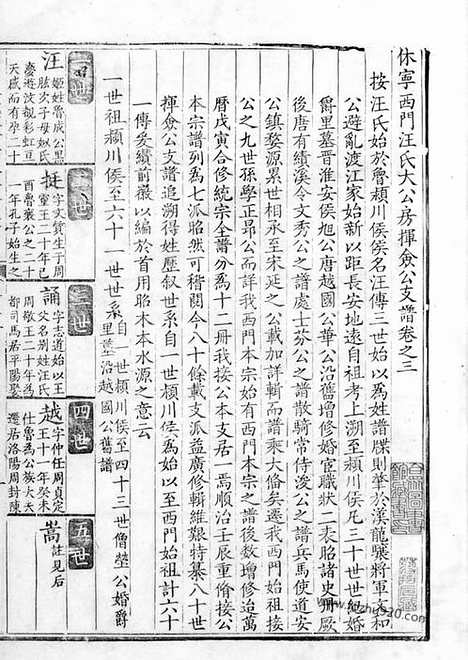 休寧西門汪氏大公房揮僉公支譜卷之三
按汪氏始於魯潁川侯侯名汪傳三世始以為姓譜牒則華於漢龍驤將軍文和
公避亂渡江家始新以距長安地遠自祖考上溯至潁川侯凡三十世世勉婚
爵里墓晋淮安侯旭公唐越國公華公沿舊增修婚宦職狀二表昭諸史冊厥
後唐有績溪令文秀公之譜處士芬公之譜散騎常侍浚公之譜兵馬使道安
公鎮婺源累世相承至宋延之公載加詳輯而譜乘大備矣遷我西門始祖接
公之九世孫學正昴公而詳我西門本宗始有西門本宗之譜後數增修迨萬
曆戊寅合修統宗全譜分為十二冊我接公本支居一焉順治壬辰重脩接公
本宗譜列為七派昭然可稽閱今八十餘載支派益廣修輯維艱特纂八十世
揮僉公支譜追溯得姓歷叙世系自一世潁川侯為始以至西門始祖計六十
一傳爰續前徽以編於首用昭木本水源之意云
一世祖潁川侯至六十一世世系自一世潁川侯至四十三世僧瑩公婚爵
里塋沿越國公舊譜
一世
二世
三世
四世
五世
汪
姬姓魯成公黑
肱次子母姒氏
慶遊波觀彩虹亘
天感而有孕二十
挺
字文質生于周
靈王二十年己
酉魯襄公之二十
一年孔子始生之
誦
字志道始以王
父名别姓汪氏
周敬王二十年為
都司馬居平陽娶
越
字仲任周貞定
王十一年癸未
仕魯為公族大夫
遷居洛陽周封陳
嵩
註見后